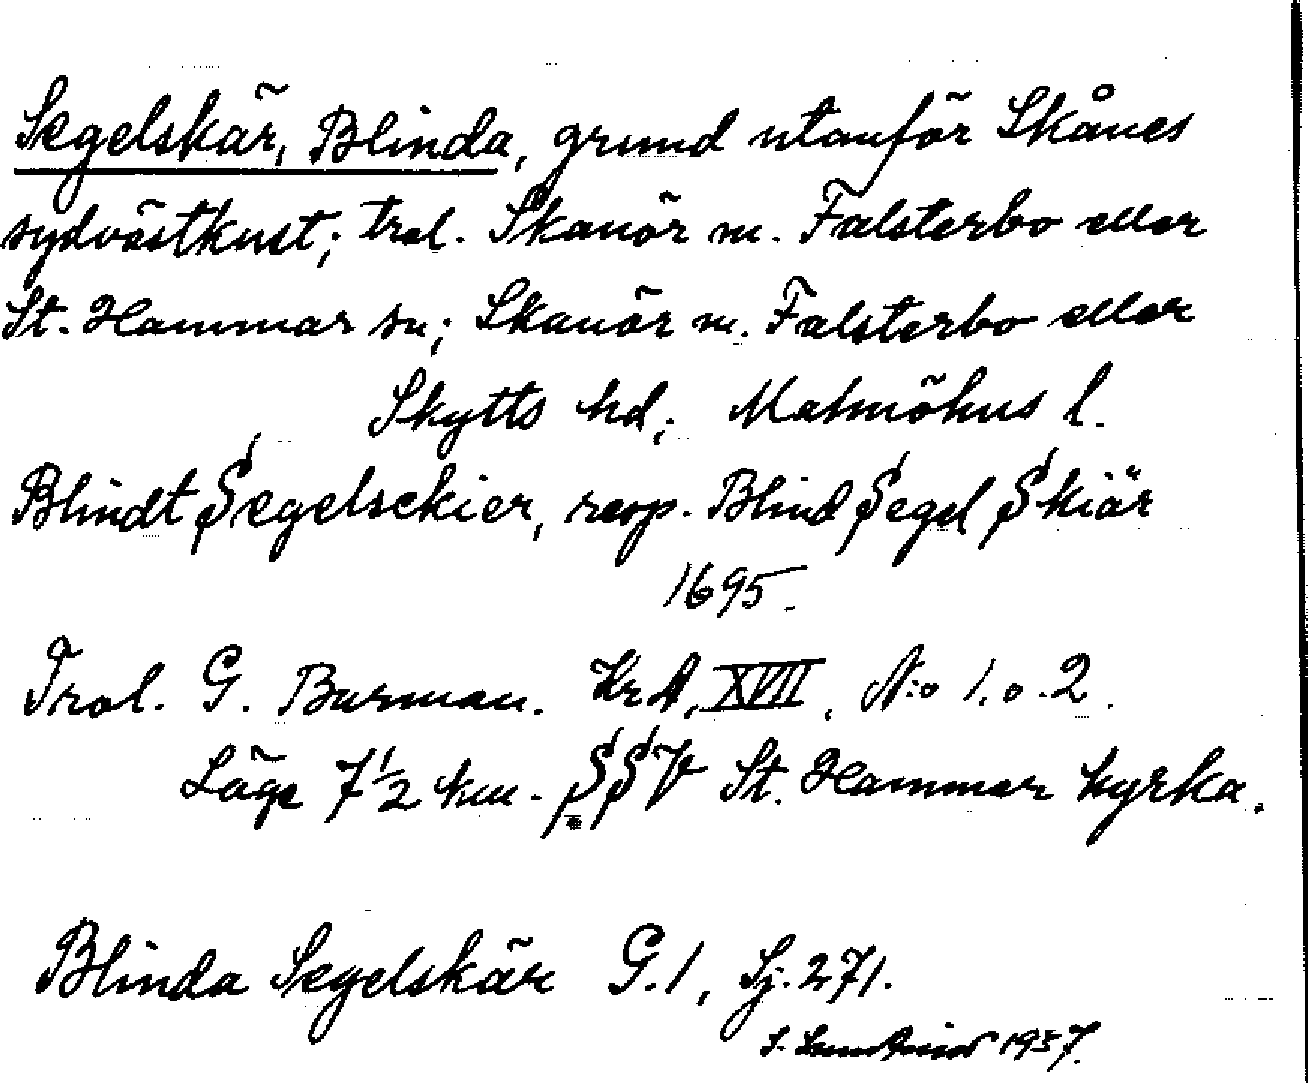 Segelskär, Blinda, grund utanför Skånes
sydvästkust; trol. Skanör m. Falsterbo eller
St. Hammar sn; Skanör m. Falsterbo eller
Skytts hd; Malmöhus l.
Blindt Segelsckier, resp. Blind Segel Skiär
1695.
Trol. G. Burman. KrA, XVII, N:o 1. o. 2.
Läge 7 1/2 km. SSV St. Hammar kyrka.
Blinda Segelskär G.1, Sj. 271.
S. 1957.